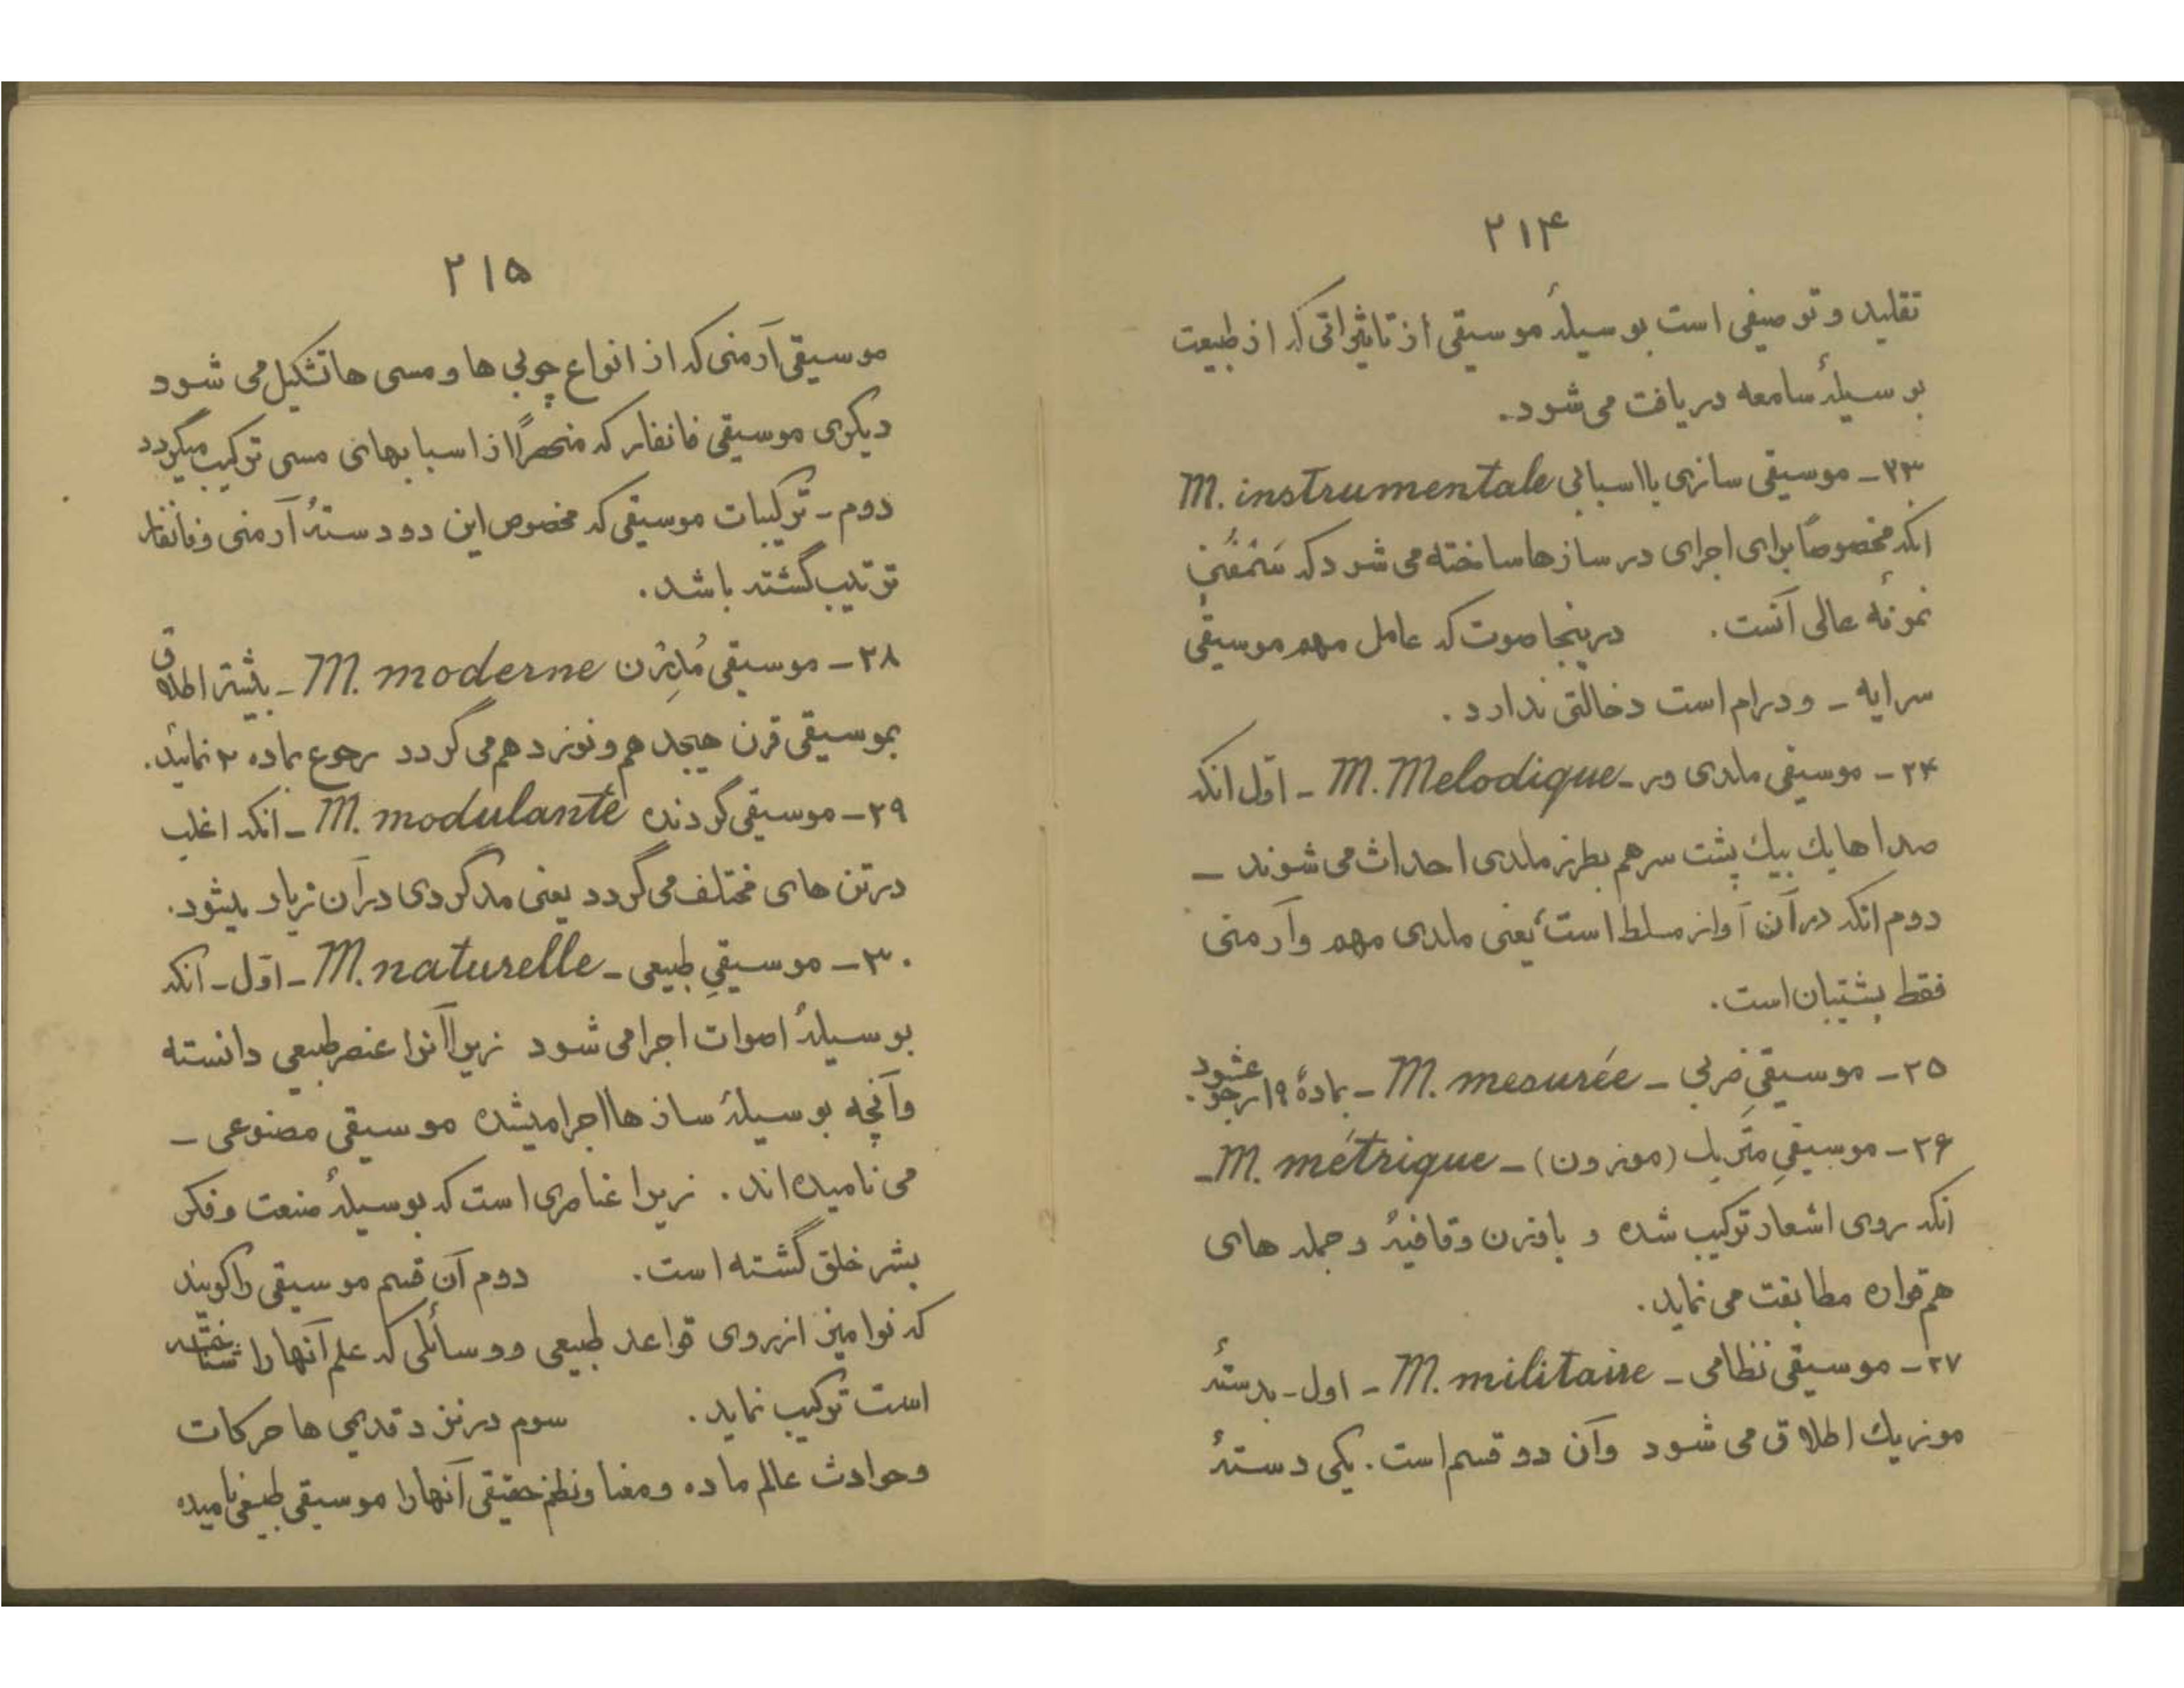 ۲۱۴
تقلید و توصیفی است بوسیلهٔ موسیقی از تاثیراتی که از طبیعت
بوسیلهٔ سامعه دریافت می شود.
۲۳ - موسیقی سازی یا اسبابی M. instrumentale
آنکه مخصوصاً برای اجرای در سازها ساخته می شود که سَنْفُنی
نمونهٔ عالی آنست. درینجا صوت که عامل مهم موسیقی
سرایه - و درام است دخالتی ندارد.
۲۴ - موسیقی ملدی ور - M. Melodique - اوّل آنکه
صداها یک بیک پشت سرهم بطرز ملدی احداث می شوند -
دوم آنکه در آن آواز مسلط است، یعنی ملدی مهم و آرمنی
فقط پشتیبان است.
۲۵ - موسیقیِ ضربی - M. mesurée - بمادهٔ ۱۹ رجوع شود.
۲۶ - موسیقیِ متریک (موزون) - M. métrique -
آنکه روی اشعار ترکیب شده و با وزن و قافیهٔ و جمله های
هم قواره مطابقت می نماید.
۲۷ - موسیقی نظامی - M. militaire - اول - بدستهٔ
موزیک اطلاق می شود و آن دو قسم است. یکی دستهٔ
۲۱۵
موسیقی آرمنی که از انواع چوبی ها و مسی ها تشکیل می شود
دیگری موسیقی فانفار که منحصراً از اسبابهای مسی ترکیب میگردد
دوم - ترکیبات موسیقی که مخصوص این دو دستهٔ آرمنی و فانفار
ترتیب گشته باشد.
۲۸ - موسیقی مُدِرْن M. moderne - بیشتر اطلاق
بموسیقی قرن هیجدهم و نوزدهم می گردد رجوع بماده ۲ نمائید.
۲۹ - موسیقی گردنده M. modulante - آنکه اغلب
در تن های مختلف می گردد یعنی مدگردی در آن زیاد بشود.
۳۰ - موسیقیِ طبیعی - M. naturelle - اوّل - آنکه
بوسیلهٔ اصوات اجرا می شود زیرا آنرا عنصر طبیعی دانسته
و آنچه بوسیلهٔ سازها اجرا میشده موسیقی مصنوعی -
می نامیده اند. زیرا عناصری است که بوسیلهٔ صنعت و فکر
بشر خلق گشته است. دوم آن قسم موسیقی را گویند
که نوا میز از روی قواعد طبیعی و وسائلی که علم آنها را شناخته
است ترکیب نماید. سوم در نزد قدیمی ها حرکات
و حوادث عالم ماده و معنا و نظم حقیقی آنها را موسیقی طبیعی نامیده